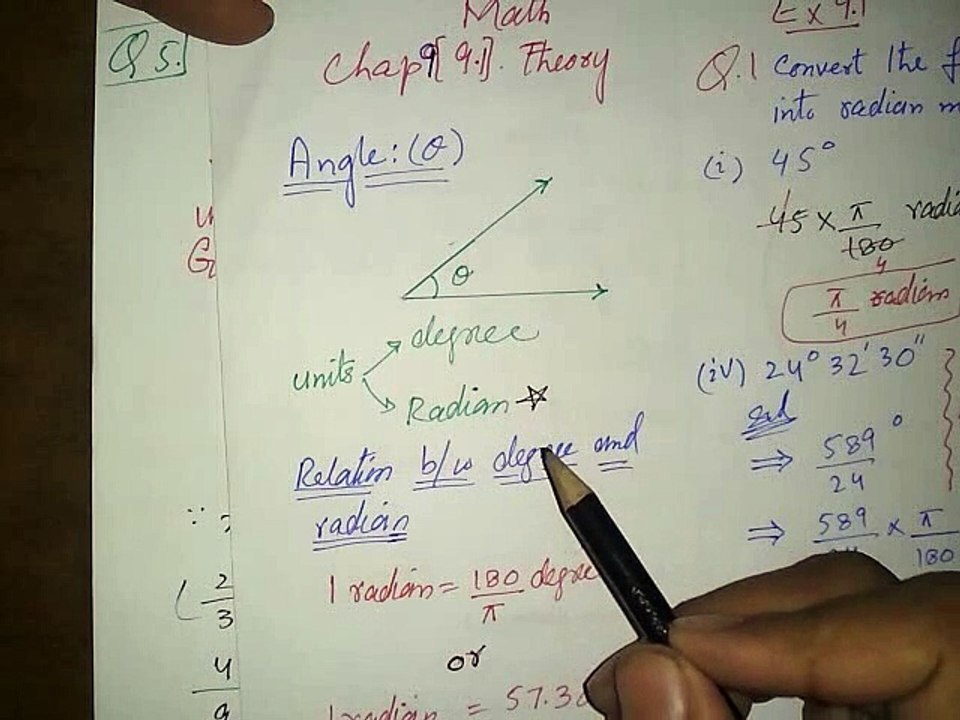 Q5.
Math
Chap9[9.1]. Theory
Angle:(θ)
θ
units
degree
Radian
Relation b/w degree and
radian
1 radian = 180/π degree
or
1 radian = 57.3
Ex 9.1
Q.1 Convert the
into radian
(i) 45°
45 × π/180
4
π/4 radian
(iv) 24° 32' 30"
Sol
⇒ 589/24 °
⇒ 589/ × π/180
2/3
4/9